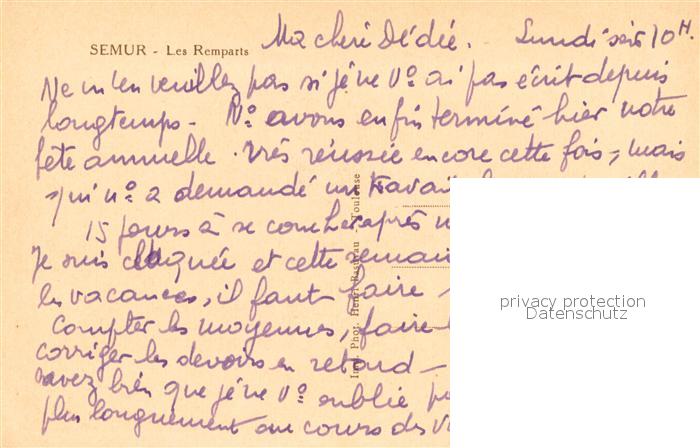 SEMUR - Les Remparts
Ma cheri Dédée. Lundi soir 10H
Ne m'en veuillez pas si je ne Vº ai pas écrit depuis
longtemps - Nº avons enfin terminé hier notre
fête annuelle. Très réussie encore cette fois, mais
qui nº a demandé un travail
15 jours à se coucher après
Je suis claquée et cette semai
les vacances, il faut faire
compter les moyennes, faire
corriger les devoirs en retard -
savez bien que je ne Vº oublie
plus longuement au cours des
Imp. Phot. Henri Toulouse
privacy protection
Datenschutz